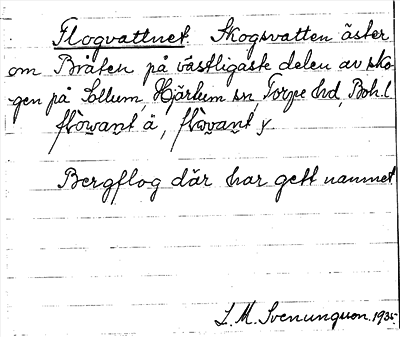 Flogvattnet Skogsvatten öster
om Bråten på västligaste delen av sko-
gen på Sollum, Hjärtum sn, Torpe hd, Boh. l
Bergflog där har gett namnet
L. M. Svenungson. 1935